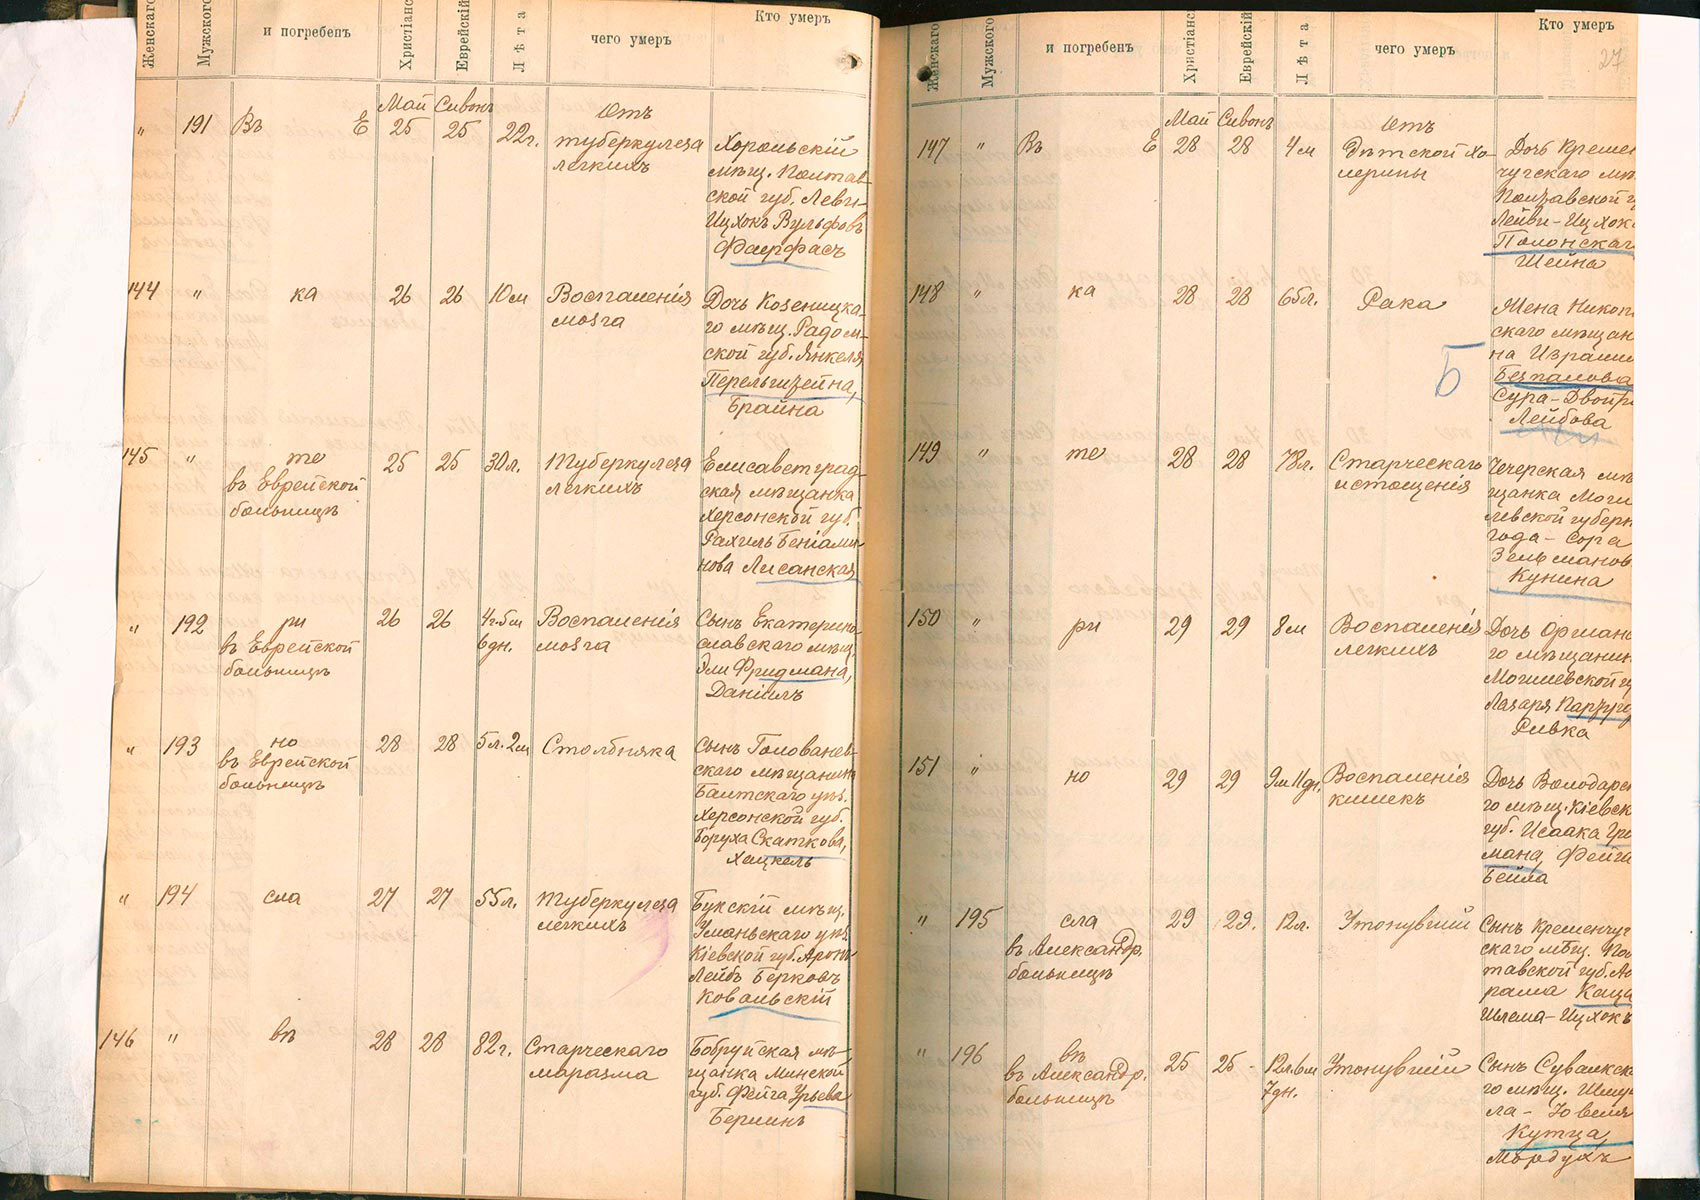 Женскаго
Мужского
и погребенъ
Христіанс
Еврейскій
Лѣта
чего умеръ
Кто умеръ
Май Сивонъ
Отъ
" 191 Въ Е 25 25 22г. туберкулеза
легкихъ
Хорольскій
мѣщ. Полтав-
ской губ. Леви-
Ицхокъ Вульфовъ
144 " ка 26 26 10м Воспаленія
мозга
Дочь Козеницка-
го мѣщ. Радом-
ской губ. Янкеля
Перельштейна,
Брайна
145 " те 25 25 30л. Туберкулеза
въ Еврейской
больницѣ
легкихъ
Елисаветград-
ская мѣщанка
Херсонской губ.
Рахиль Беніами-
нова Лисанская
" 192 ри 26 26 4г.5м
6дн.
Воспаленія
мозга
въ Еврейской
больницѣ
Сынъ Екатерино-
славскаго мѣщ.
Эли Фридмана,
Даніилъ
" 193 но 28 28 5л.2м Столбняка
въ Еврейской
больницѣ
Сынъ Голованев-
скаго мѣщанина
Балтскаго уѣз.
Херсонской губ.
Боруха Скаткова,
Хацкель
" 194 сла 27 27 55л. Туберкулеза
легкихъ
Букскій мѣщ.
Уманьскаго уѣз.
Кіевской губ. Аронъ-
Лейбъ Берковъ
Ковальскій
146 " въ 28 28 82г. Старческаго
маразма
Бобруйская мѣ-
щанка Минской
губ. Фейга Урьева
Берлинъ
Женскаго
Мужского
и погребенъ
Христіанс
Еврейскій
Лѣта
чего умеръ
Кто умеръ
27
Май Сивонъ
Отъ
147 " Въ Е 28 28 4м Дѣтской хо-
лерины
Дочь Кремен
чугскаго мѣ
Полтавской г
Лейви-Ицхок
Полонскаг
Шейна
148 " ка 28 28 65л. Рака
Б
Жена Никоп
скаго мѣщан
на Израил
Безпалова
Сура-Двойр
Лейбова
149 " те 28 28 78л. Старческаго
истощенія
Чечерская мѣ
щанка Моги
левской губерн
года - Сора
Зельманов
Кунина
150 " ри 29 29 8м Воспаленія
легкихъ
Дочь Оршанс
го мѣщанин
Могилевской гу
Лазаря
Ривка
151 " но 29 29 9м11дн. Воспаленія
кишекъ
Дочь Володарс
го мѣщ. Кіевск
губ. Исаака Гро
мана, Фейга
Бейла
" 195 сла 29 29. 12л. Утонувшій
въ Александр.
больницѣ
Сынъ Кременчуг
скаго мѣщ. Пол
тавской губ. Аб
рама Каца
Шлема-Ицхокъ
" 196 въ 25 25 - 12л.6м
7дн.
Утонувшій
въ Александр.
больницѣ
Сынъ Сувалкск
го мѣщ. Шму
ла - Іовеля
Кутца,
Мордухъ